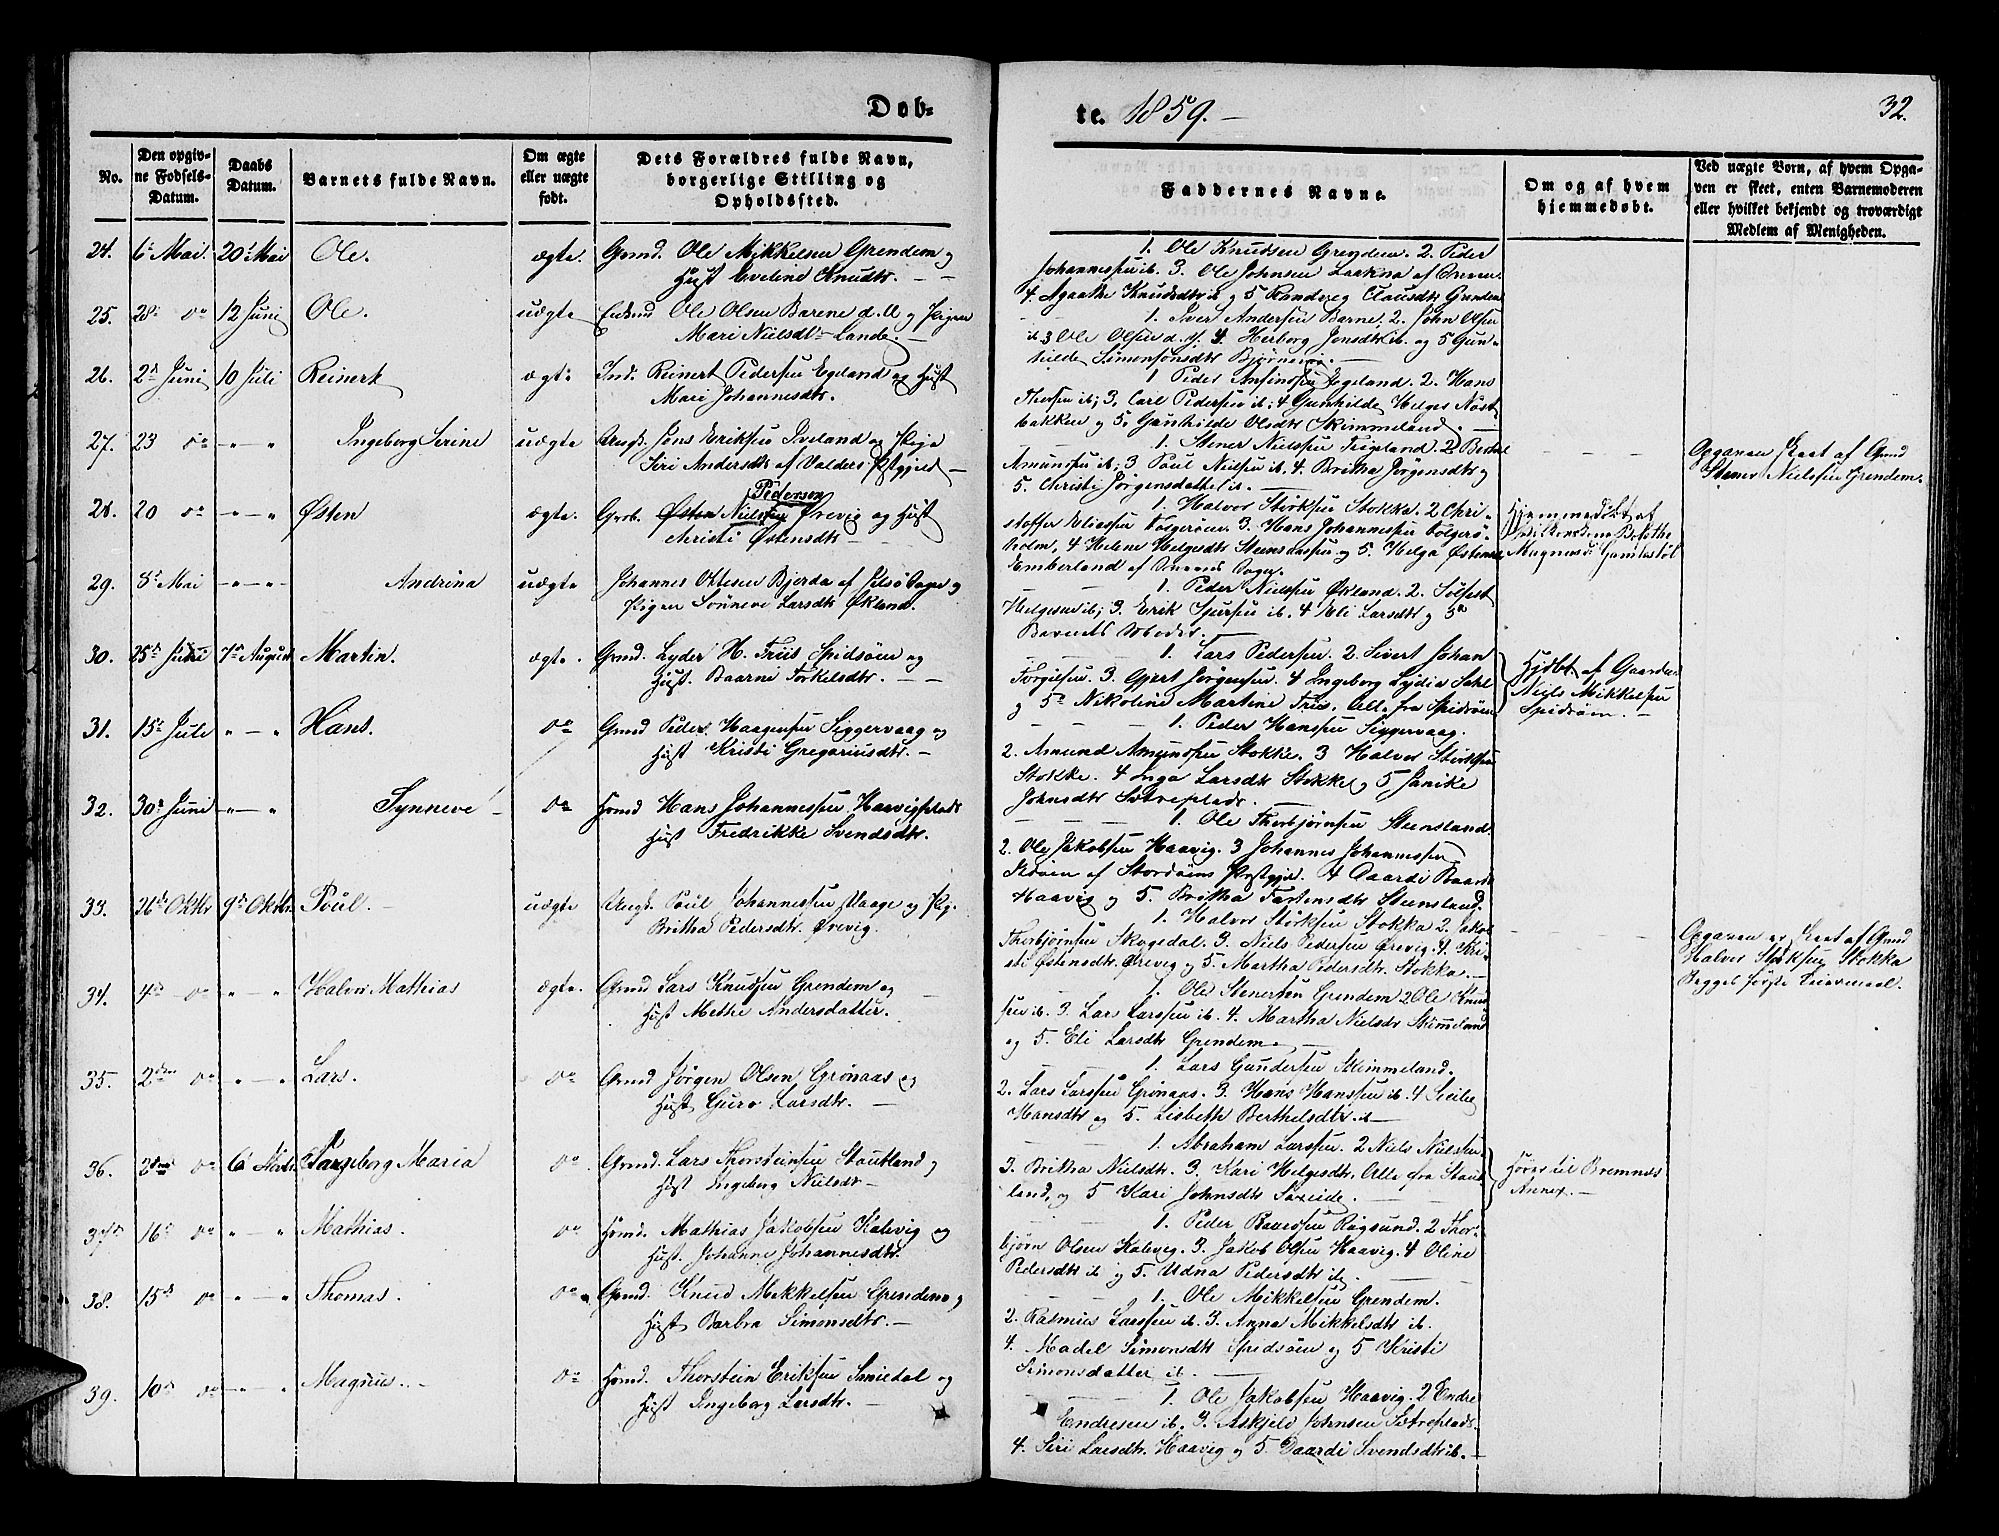 Døb-
te. 1859.
32.
No.
Den opgiv-
ne Fødsels-
Datum.
Daabs
Datum.
Barnets fulde Navn.
Om ægte
eller uægte
født.
Dets Forældres fulde Navn,
borgerlige Stilling og
Opholdssted.
Faddernes Navne.
Om og af hvem
hjemmedøbt.
Ved uægte Børn, af hvem Opga-
ven er skeet, enten Barnemoderen
eller hvilket bekjendt og troværdigt
Medlem af Menigheden.
24. 6te Mai. 20de Mai Ole. ægte. Gmd. Ole Mikkelsen Grendem og
Hust Eveline Knudtr.
1. Ole Knudsen Grendem. 2. Peder
Johannessen ib. 3. Ole Johnsen
4. Agaathe Knudsdtr ib og 5 Clausdtr Grendem
25. 28 do 12 Juni Ole. uægte Ole Olsen Barene d. æ og Pigen
Mari Nielsdtr Lande.
1. Iver Andersen Barne, 2. John Olsen
ib 3 Ole Olsen d. y. 4. Herborg Jonsdtr ib. og 5 Gun-
hilde Simonsdtr
26. 2de Juni 10 Juli Reinert ægte Ind. Reinert Pedersen Egeland og Hust
Mari Johannesdtr.
1 Peder Ansinsen Egeland. 2. Hans
ib; 3. Carl Pedersen ib; 4 Gunhilde Helges Nøst-
bakken og 5. Gunhilde Olsdtr Skimmeland.
27. 23 do Ingeborg Serine uægte Ungk. Jøns Eriksen og Pige
Siri Andersdtr af Valders Prstgjeld
1. Stener Nielsen 2
Amundsen ib; 3 Poul Nielsen ib. 4. Britha Jørgensdtr og
5. Christi Jørgensdatter ib.
Opgaven skeet af Gmd
Stener Nielsen Grendem.
28. 20 do Østen ægte. Grb. Østen Nielsen Pedersen Ørevig og Hust
Christi Østensdtr
1. Halvor Størksen Stokke. 2 Chri-
stoffer Eliassen Folgerøen. 3. Hans Johannessen Folgerø-
holm, 4 Helene Helgesdtr og 5. Helga Østensd
Emberland af
Hjemmedøbt af
Magnesdtr
29. 8de Mai Andrina uægte Johannes Ottesen Bjerda af Sogn og
Pigen Sønneve Larsdtr Økland.
1. Peder Nielsen Økland. 2. Solfest
Helgesen ib; 3. Erik ib. 4 Eli Larsdtr og 5te
Barnets Moder.
30. 25de Juni 7de August Martin. ægte. Gmd. Lyder H. Friis Spidsøen og
Hust. Baarne Torkelsdtr.
1. Lars Pedersen. 2. Sivert Johan
Torgilsen. 3. Gjert Jørgensen. 4 Ingeborg Lydia
og 5te Nikoline Martine Friis. Alle fra Spidsøen
Hjdbt af Gaardm.
Niels Mikkelsen
Spidsøen.
31. 15de Juli Hans. do Gmd Peder Haagensen Siggervaag og
Hust Kristi Gregoriusdtr.
1. Peder Hansen Siggervaag.
2. Amund Amundsen Stokke. 3 Halvor Størksen
Stokke. 4 Inga Larsdtr Stokke og 5, Janike
Johnsdtr Sætreplads.
32. 30te Juni Synneve do Hsmd Hans Johannessen Haavigsplads
Hust Fredrikke Svendsdtr.
1. Ole Thorbjørnsen Steensland.
2. Ole Jakobsen Haavig. 3 Johannes Johannessen
af Stordøens Prstgjd. 4 Baards
Haavig og 5. Britha Tostensdtr Steensland.
33. 26de Oktbr 9de Oktbr. Poul. uægte Ungk. Poul Johannessen Vaage og Pig.
Britha Pedersdtr. Ørevig.
1. Halvor Størksen Stokka 2. Jakob
Thorbjørnsen Skogedal. 3. Niels Pedersen Ørevig. 4. Kri-
sti Østensdtr. Ørevig og 5. Martha Pedersdtr. Stokka.
Opgaven er skeet af Gmd
Halvor Størksen Stokka
Begges første Leiermaal.
34. 4de do Halvor Mathias ægte. Gmd Lars Knudsen Grendem og
Hust Methe Andersdatter.
1. Ole Stenersen Grendem 2 Ole Knud-
sen ib. 3. Lars Larssen ib. 4. Martha Nielsdr Skimmeland
og 5. Eli Larsdtr Grendem.
35. 2den do Lars. do Gmd Jørgen Olsen Grønaas og
Hust Guro Larsdtr.
1. Lars Gundersen Skimmeland.
2. Lars Larssen Grønaas. 3 Hans Hanssen ib. 4 Seilie
Hansdtr og 5. Lisbeth Berthelsdtr. ib
36. 28de do 6te Novbr. Ingeborg Maria do. Gmd. Lars Thorsteinsen Stoutland og
Hust Ingeborg Nielsdr
1. Abraham Larssen. 2 Niels Nielsen
3. Britha Nielsdtr. 3. Kari Helgesdtr. Alle fra Stout-
land, og 5 Kari Johnsdtr Sæxeide.
Hører til Bremnes
Annex.
37. 16de do Mathias. do Hsmd. Mathias Jakobsen Kalevig og
Hust. Johanne Johannesdtr.
1. Peder Baardsen Røgsund. 2 Thor-
bjørn Olsen Kalevig. 3. Jakob Olsen Haavig. 4 Oline
Pedersdtr ib og 5. Udna Pedersdtr ib.
38. 15de do Thomas. do Gmd. Knud Mikkelsen Grendem og
Hust Barbra Simonsdtr.
1. Ole Mikkelsen Grendem.
2. Rasmus Larssen ib. 3. Anna Mikkelsdtr ib.
4. Madel Simonsdtr Spidsøen og 5 Kristi
Simonsdatter ib.
39. 10de do Magnus. do Hsmd. Thorstein Eriksen Smiedal og
Hust Ingeborg Larsdtr.
1. Ole Jakobsen Haavig. 2 Endre
Endresen ib. 3. Askjeld Johnsen Sætreplads.
4. Siri Larsdtr. Haavig og 5 Daardi Svendsdtr ib.